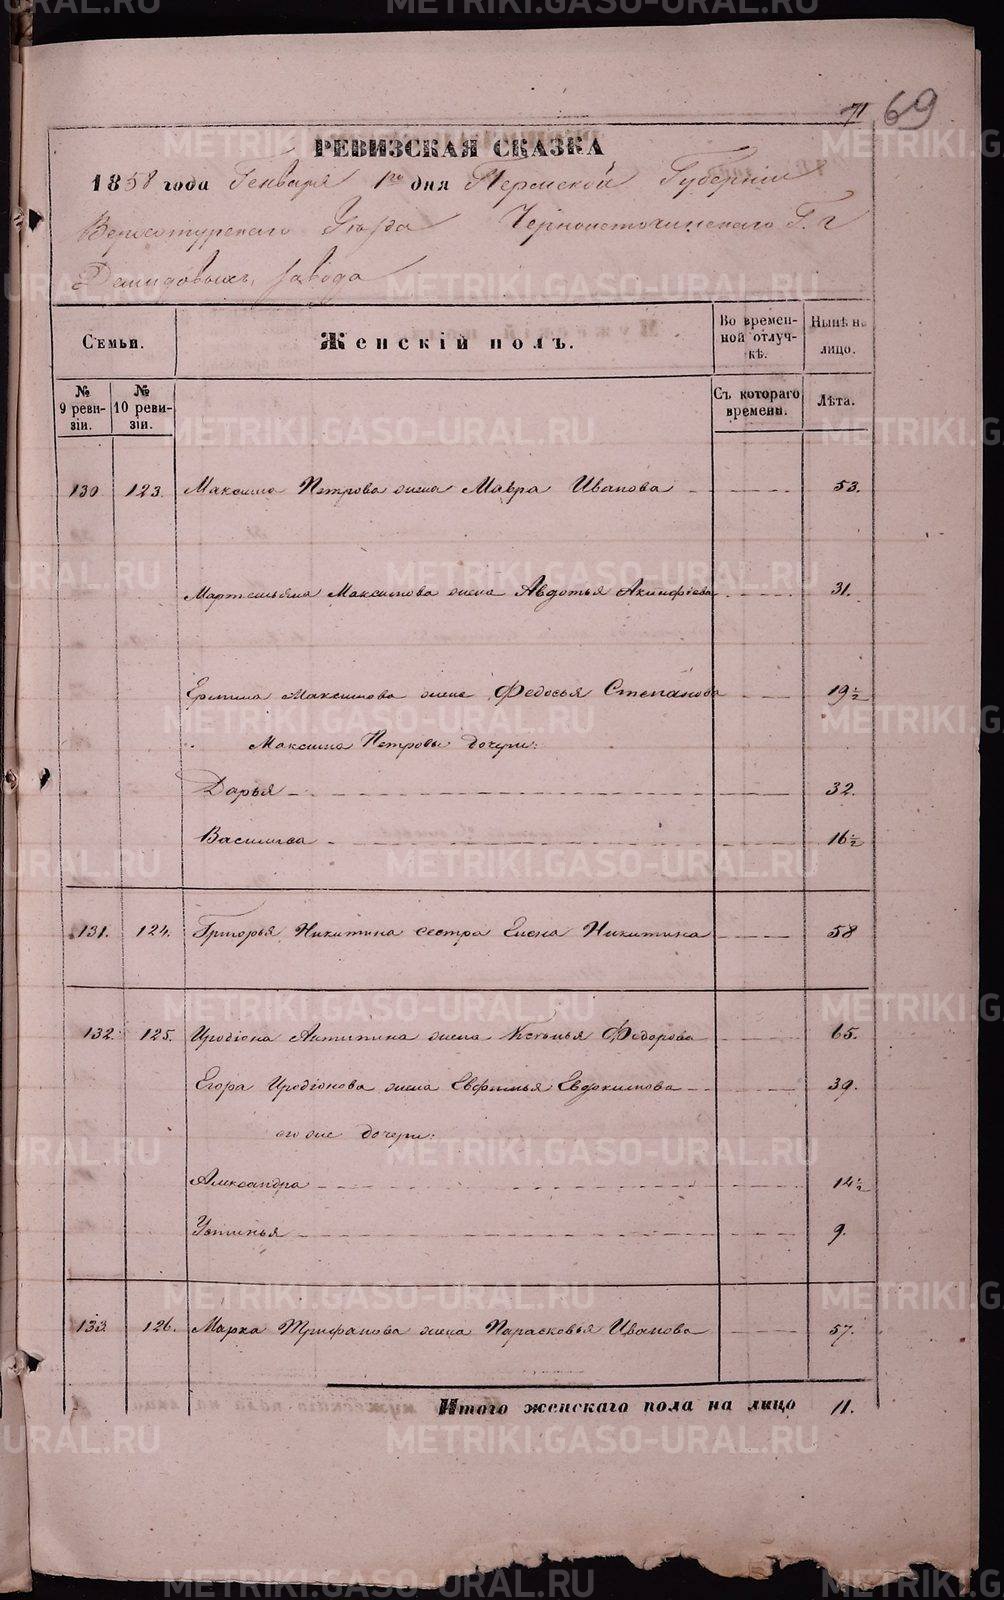 71 69
РЕВИЗСКАЯ СКАЗКА
1858 года Генваря 1го дня Пермской Губерніи
Верхотурскаго Уѣзда Черноисточинскаго Г. г
Демидовыхъ завода
Семьи. Женскій полъ. Во временной отлучкѣ. Нынѣ на лицо.
№ 9 ревизіи. № 10 ревизіи. Съ котораго времени. Лѣта.
130 123. Максима Петрова жена Мавра Иванова 53.
Мартемьяна Максимова жена Авдотья Акинфіева 31.
Ермила Максимова жена Федосья Степанова 19½
Максима Петрова дочери:
Дарья 32.
Василиса 16½
131. 124. Григорья Никитина сестра Елена Никитина 58
132. 125. Иродіона Антипина жена Федорова 65.
Егора Иродіонова жена Евфимья Евдокимова 39.
его же дочери:
Александра 14½
Устинья 9.
133. 126. Марка Трифанова жена Парасковья Иванова 57.
Итого женскаго пола на лицо 11.
METRIKI.GASO-URAL.RU